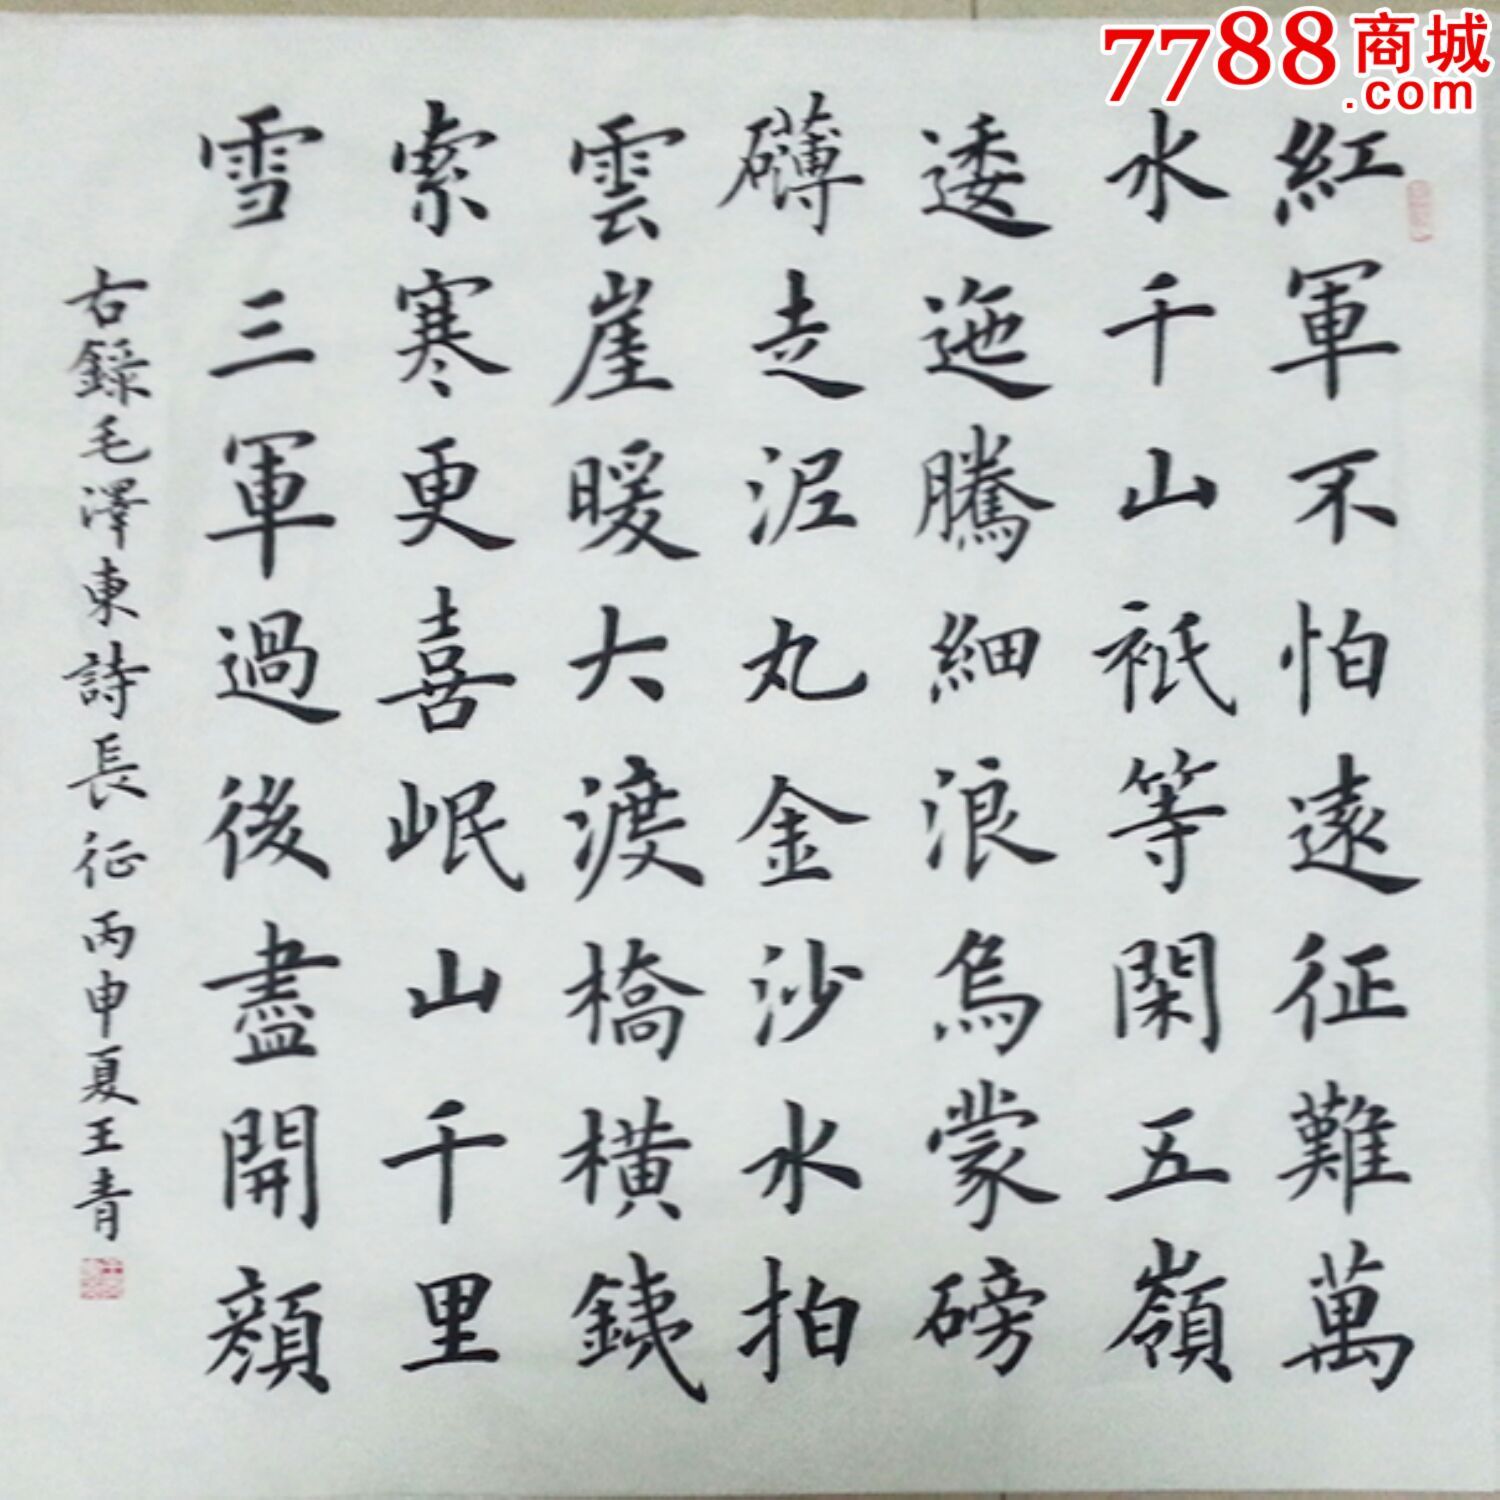 7788商城
.com
紅軍不怕遠征難萬
水千山衹等閑五嶺
逶迤騰細浪烏蒙磅
礴走泥丸金沙水拍
雲崖暖大渡橋橫鉄
索寒更喜岷山千里
雪三軍過後盡開顔
右録毛澤東詩長征丙申夏王青